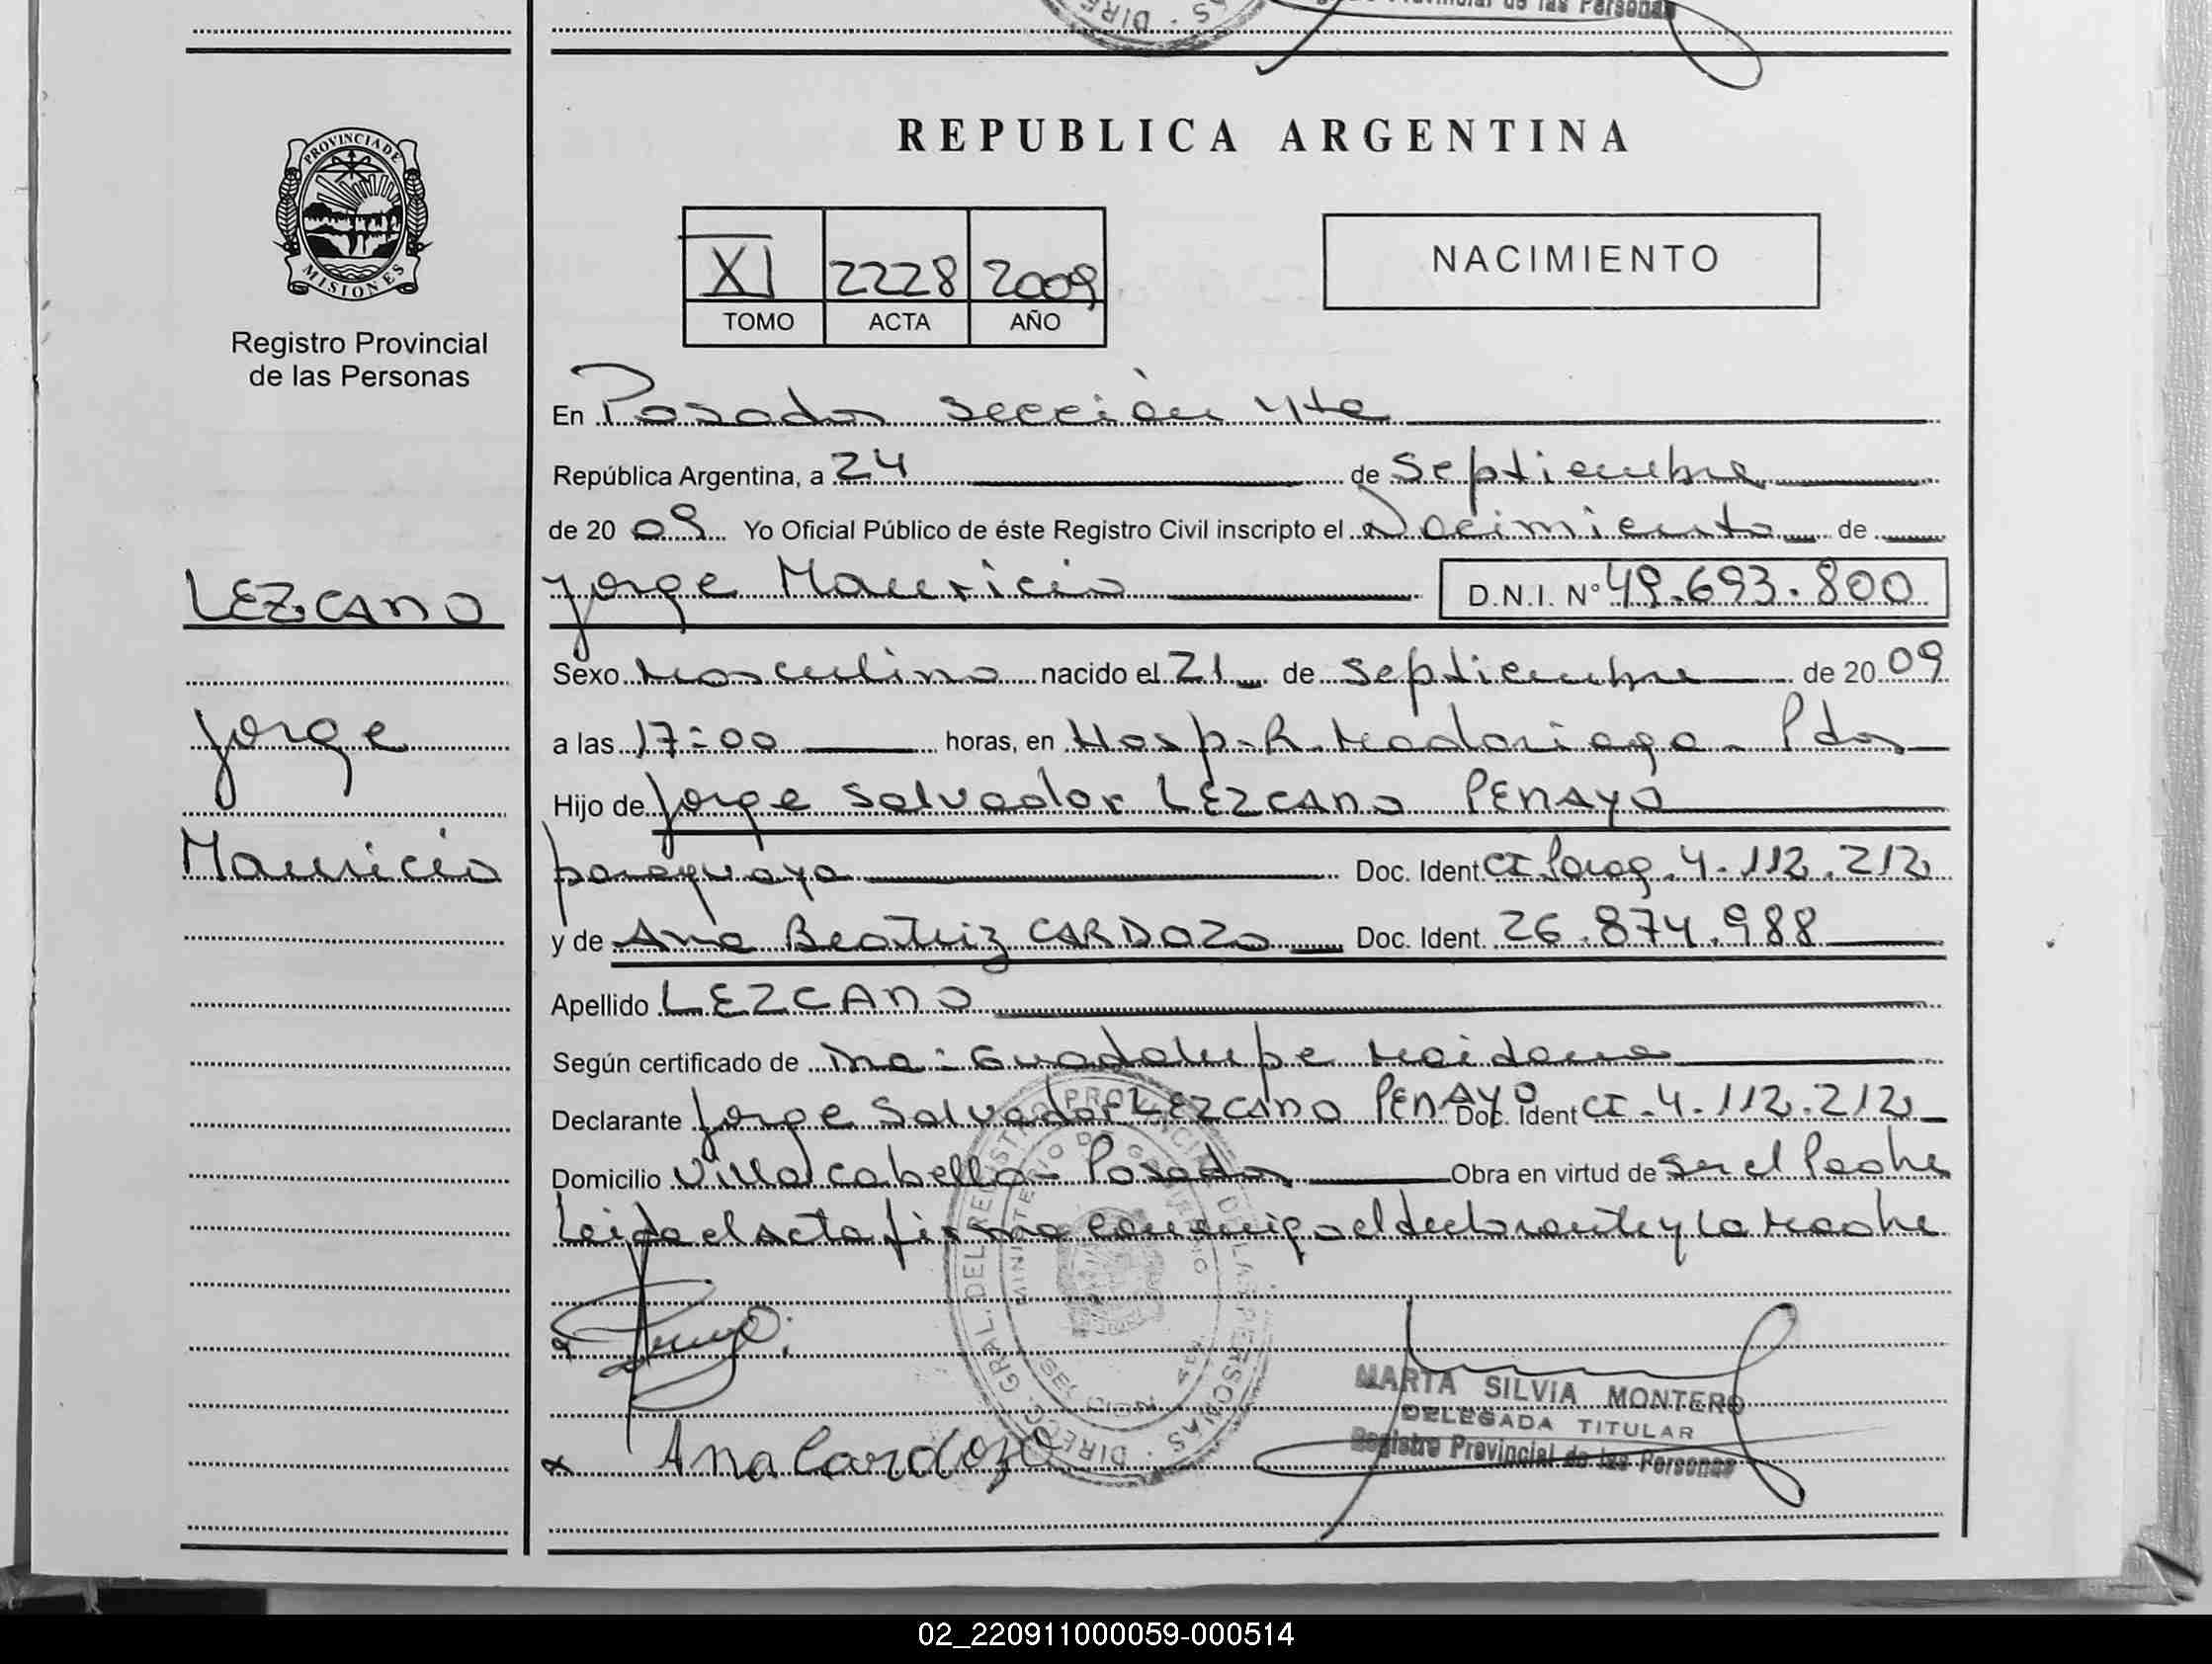 REPUBLICA ARGENTINA
PROVINCIA DE MISIONES
Registro Provincial
de las Personas
XI 2228 2009
TOMO ACTA AÑO
NACIMIENTO
En Posadas sección 4ta
República Argentina, a 24 de septiembre
de 20 09 Yo Oficial Público de éste Registro Civil inscripto el Nacimiento de
LEZCANO
Jorge Mauricio D.N.I. Nº 49.693.800
Sexo Masculino nacido el 21 de septiembre de 20 09
Jorge
a las 17:00 horas, en Hosp. R. Madariaga - Pdas
Hijo de Jorge Salvador LEZCANO PENAYO
Mauricio
paraguayo Doc. Ident. CI Parag. 4.112.212
y de Ana Beatriz CARDOZO Doc. Ident. 26.874.988
Apellido LEZCANO
Según certificado de Dra: Guadalupe Maidana
Declarante Jorge Salvador LEZCANO PENAYO Doc. Ident CI. 4.112.212
Domicilio Villa Cabello - Posadas Obra en virtud de ser el Padre
Leida el acta firma conmigo el declarante y la Madre
MARTA SILVIA MONTERO
DELEGADA TITULAR
Registro Provincial de las Personas
Ana Cardozo
02_220911000059-000514